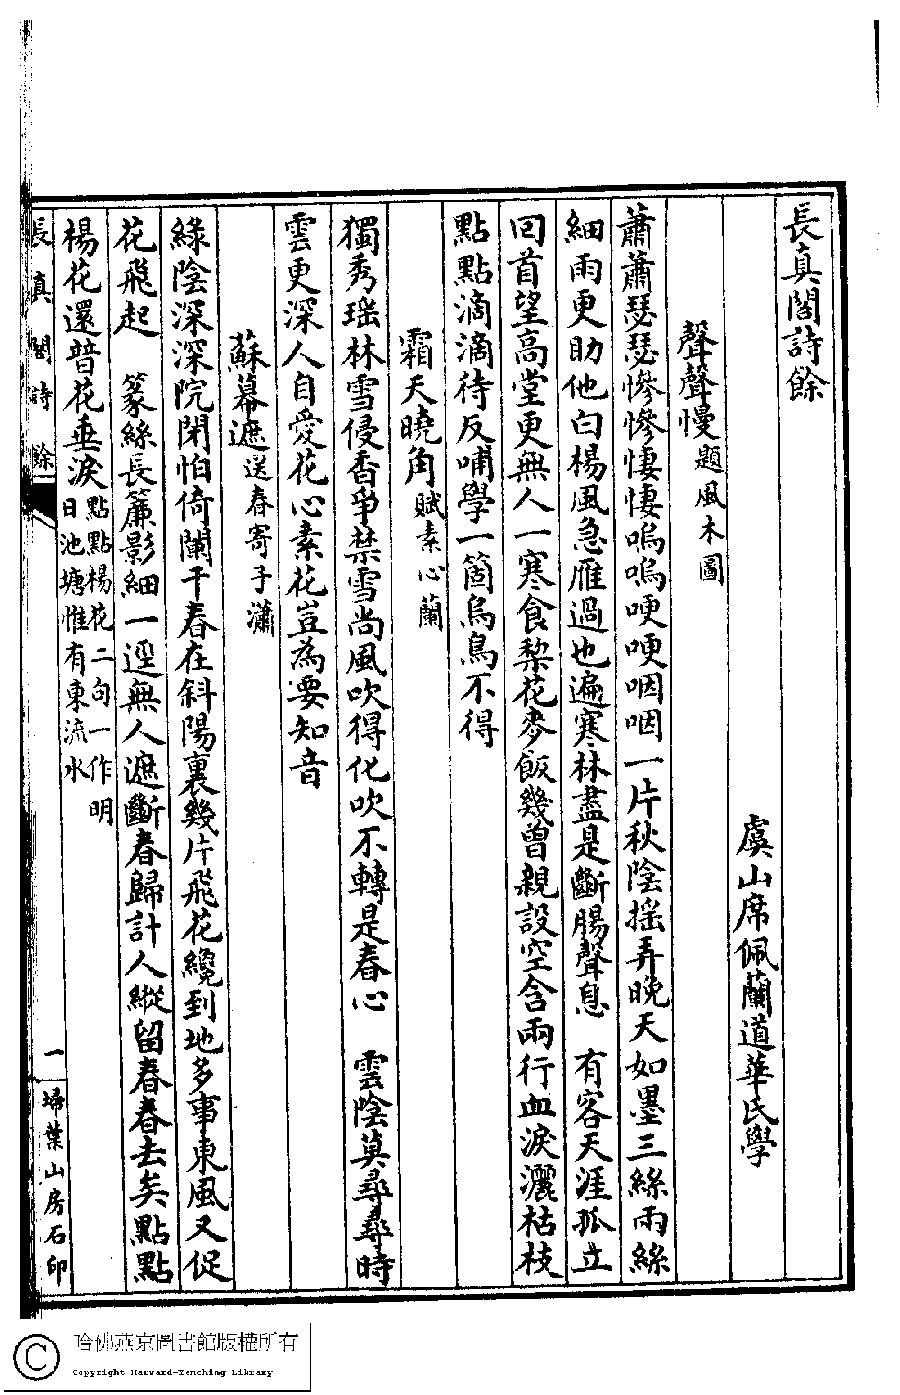 長真閣詩餘
虞山席佩蘭道華氏學
聲聲慢題風木圖
蕭蕭瑟瑟慘慘悽悽嗚嗚哽哽咽咽一片秋陰搖弄晚天如墨三絲雨絲
細雨更助他白楊風急雁過也遍寒林盡是斷腸聲息　有客天涯孤立
回首望高堂更無人一寒食棃花麥飯幾曾親設空含兩行血淚灑枯枝
點點滴滴待反哺學一箇烏鳥不得
霜天曉角賦素心蘭
獨秀瑶林雪侵香爭禁雪尚風吹得化吹不轉是春心　雲陰莫尋尋時
雲更深人自愛花心素花豈為要知音
蘇幕遮送春寄子瀟
綠陰深深院閉怕倚闌干春在斜陽裏幾片飛花纔到地多事東風又促
花飛起　篆絲長簾影細一逕無人遮斷春歸計人縱留春春去矣點點
楊花還普花垂淚點點楊花二句一作明日池塘惟有東流水
長真閣詩餘
一
埽葉山房石印
哈佛燕京圖書館版權所有
Copyright Harvard-Yenching Library